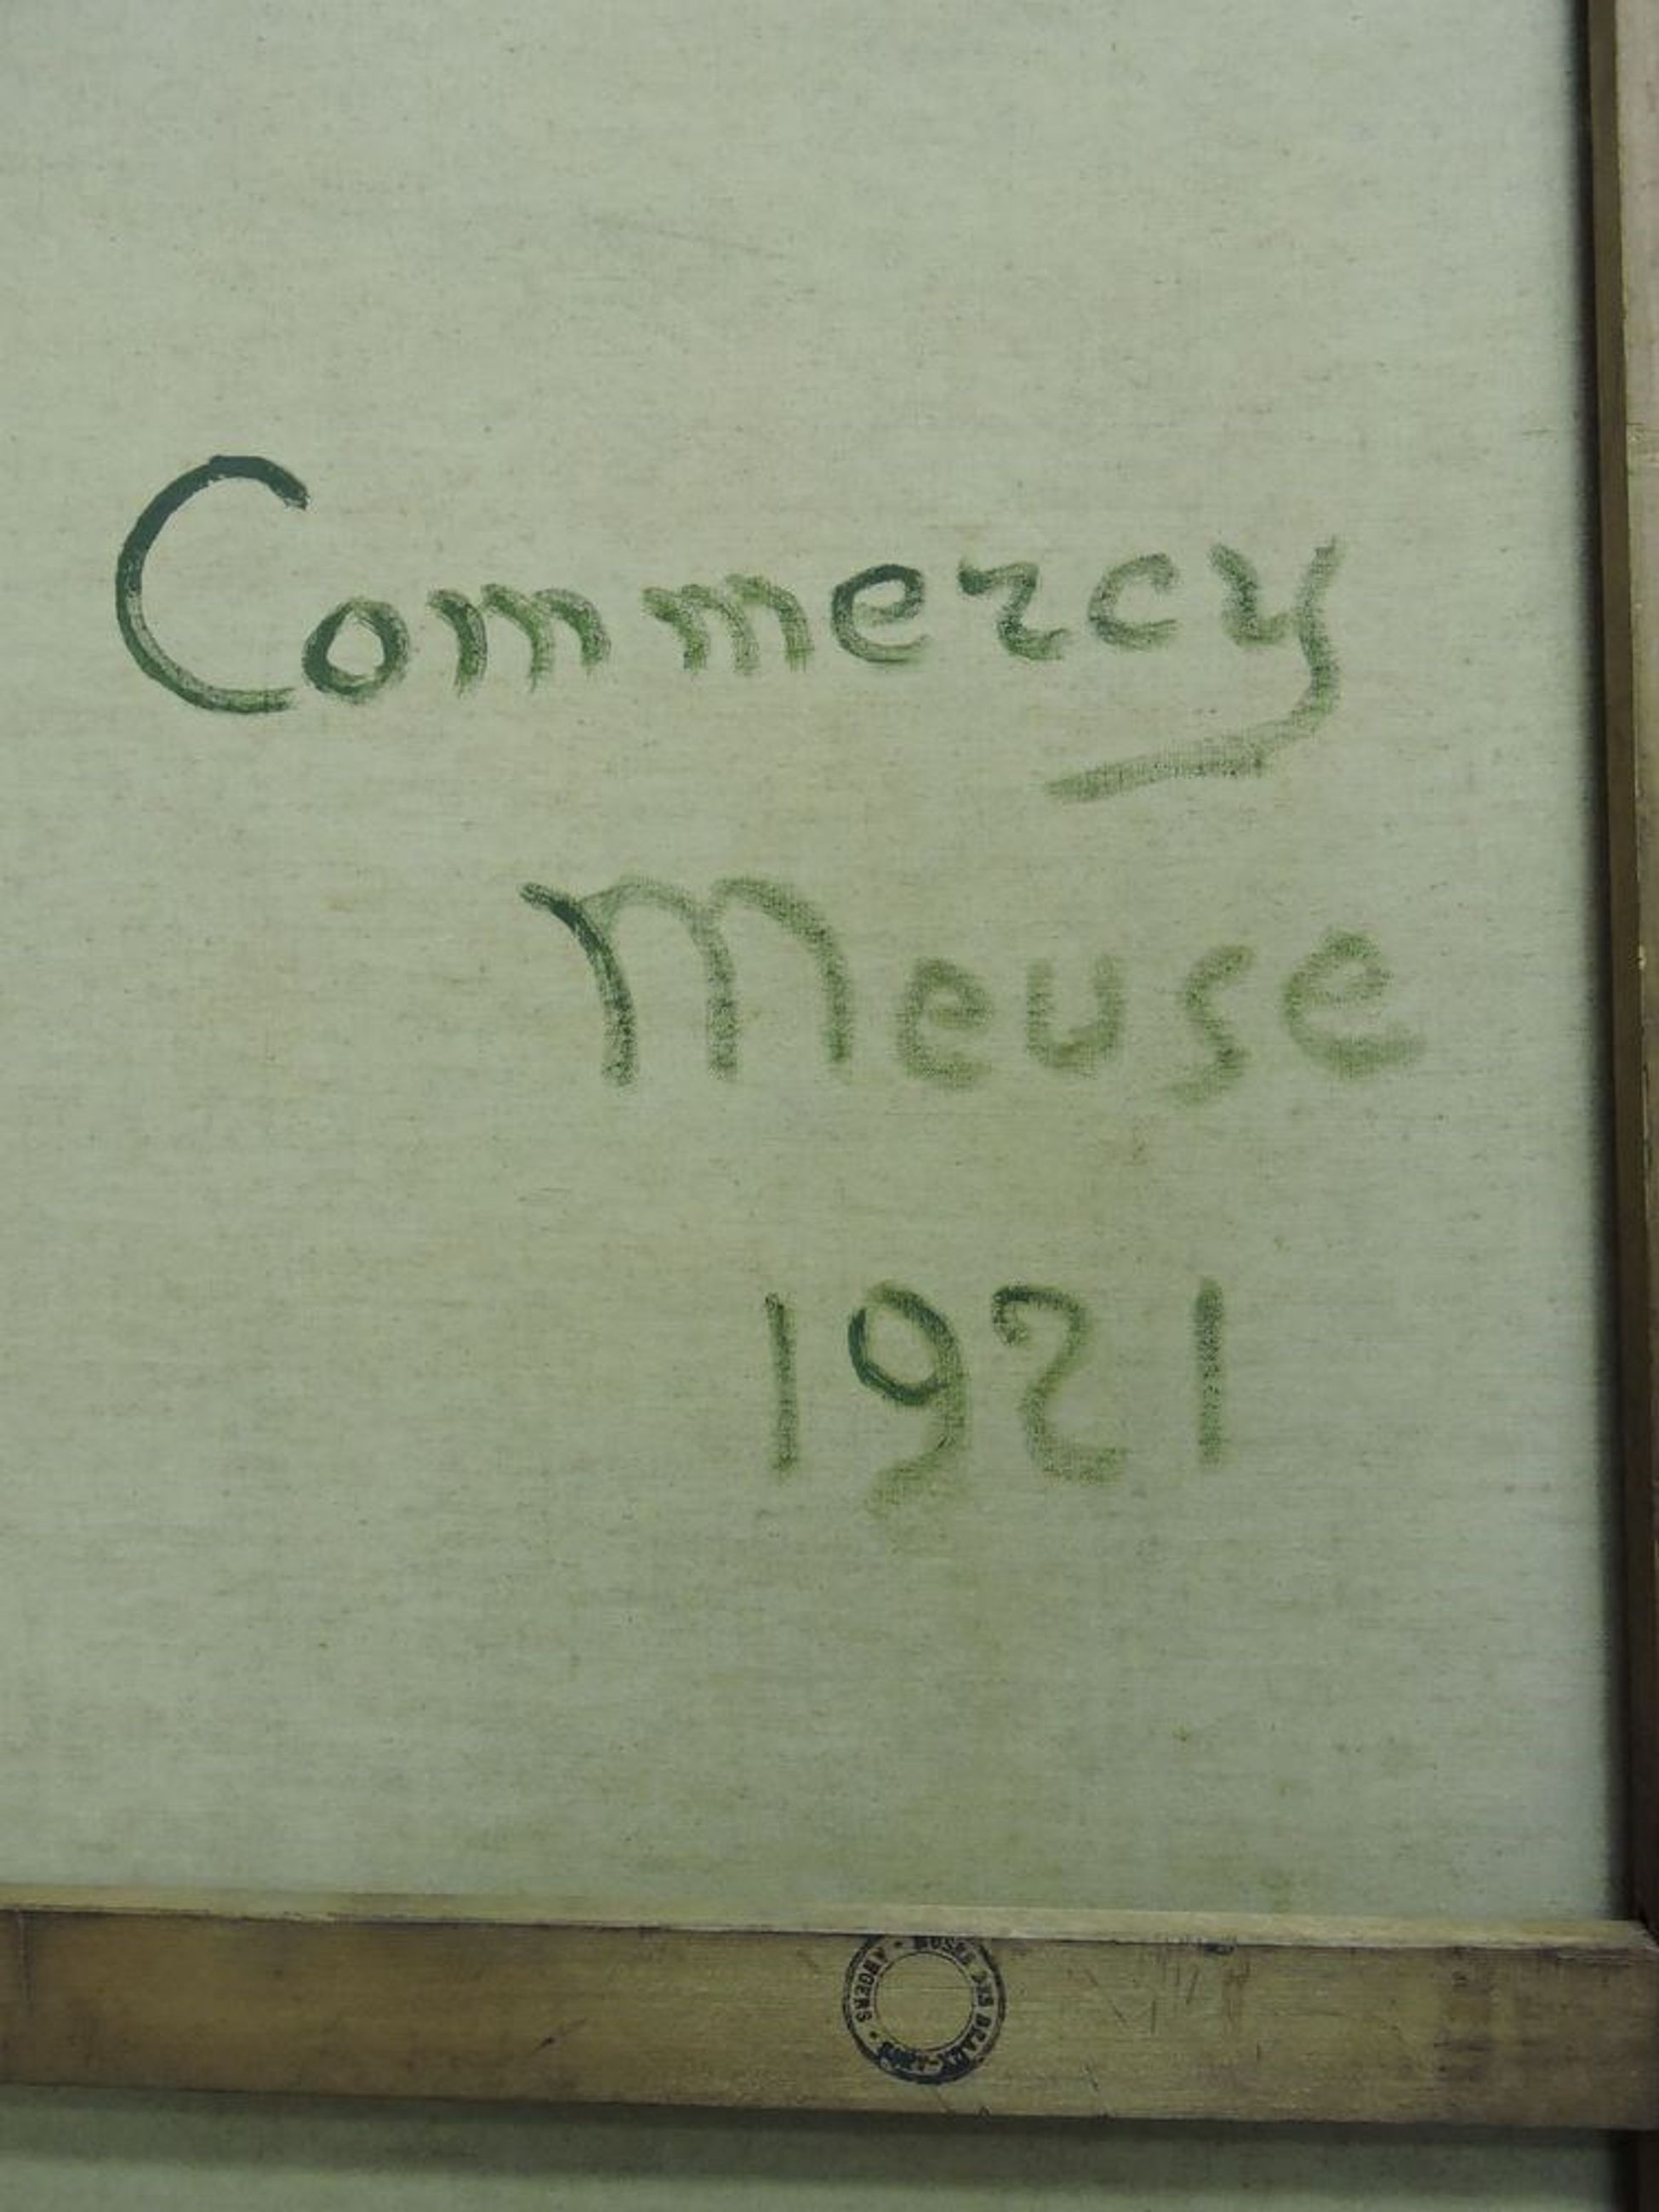 Commercy
Meuse
1921
MUSÉE DES BEAUX-ARTS • ANGERS •